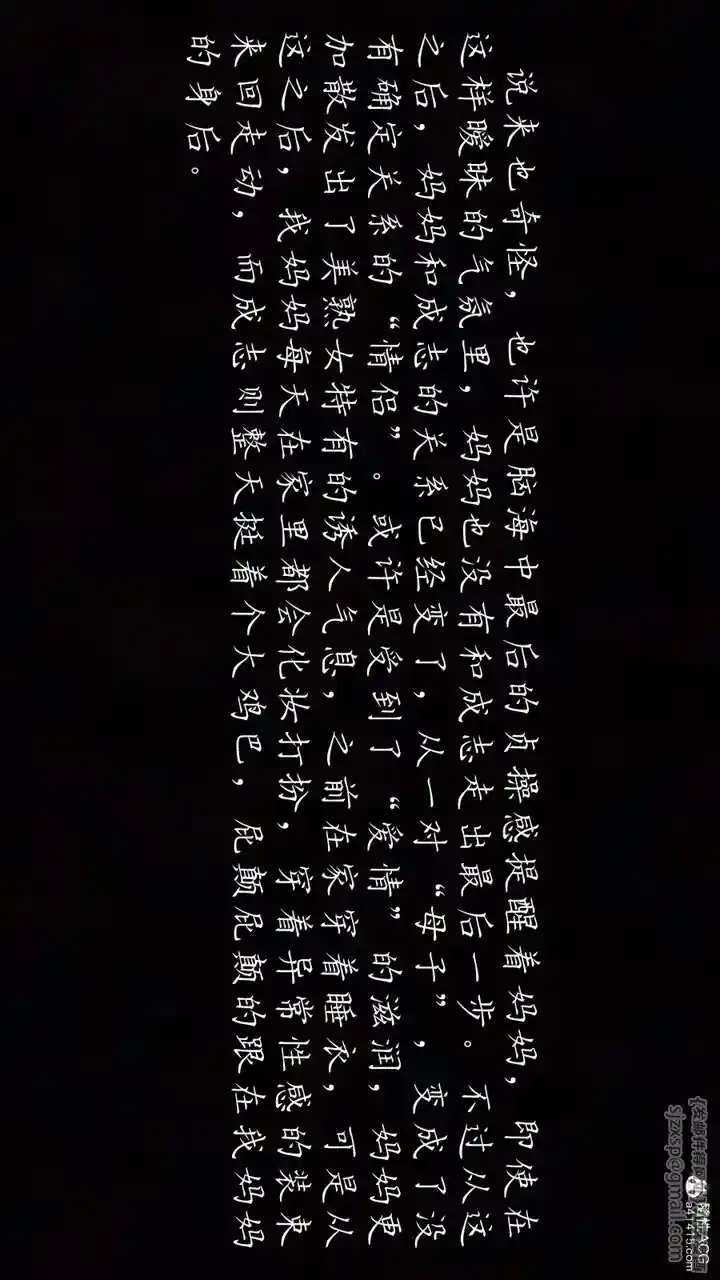 说来也奇怪，也许是脑海中最后的贞操感提醒着妈妈，即使在
这样暧昧的气氛里，妈妈也没有和成志走出最后一步。不过从这
之后，妈妈和成志的关系已经变了，从一对“母子”，变成了没
有确定关系的“情侣”。或许是受到了“爱情”的滋润，妈妈更
加散发出了美熟女特有的诱人气息，之前在家穿着睡衣，可是从
这之后，我妈妈每天在家里都会化妆打扮，穿着异常性感的装束
来回走动，而成志则整天挺着个大鸡巴，屁颠屁颠的跟在我妈妈
的身后。
sjzxsp@gmail.com
a41415.com